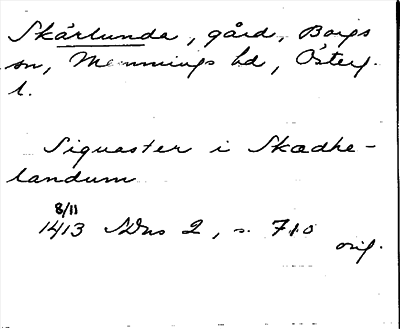 Skärlunda, gård, Borgs
sn, Memmings hd, Österg.
l.
Siguaster i Skædhe-
landum
8/11
1413 SDns 2, s. 710
orig.